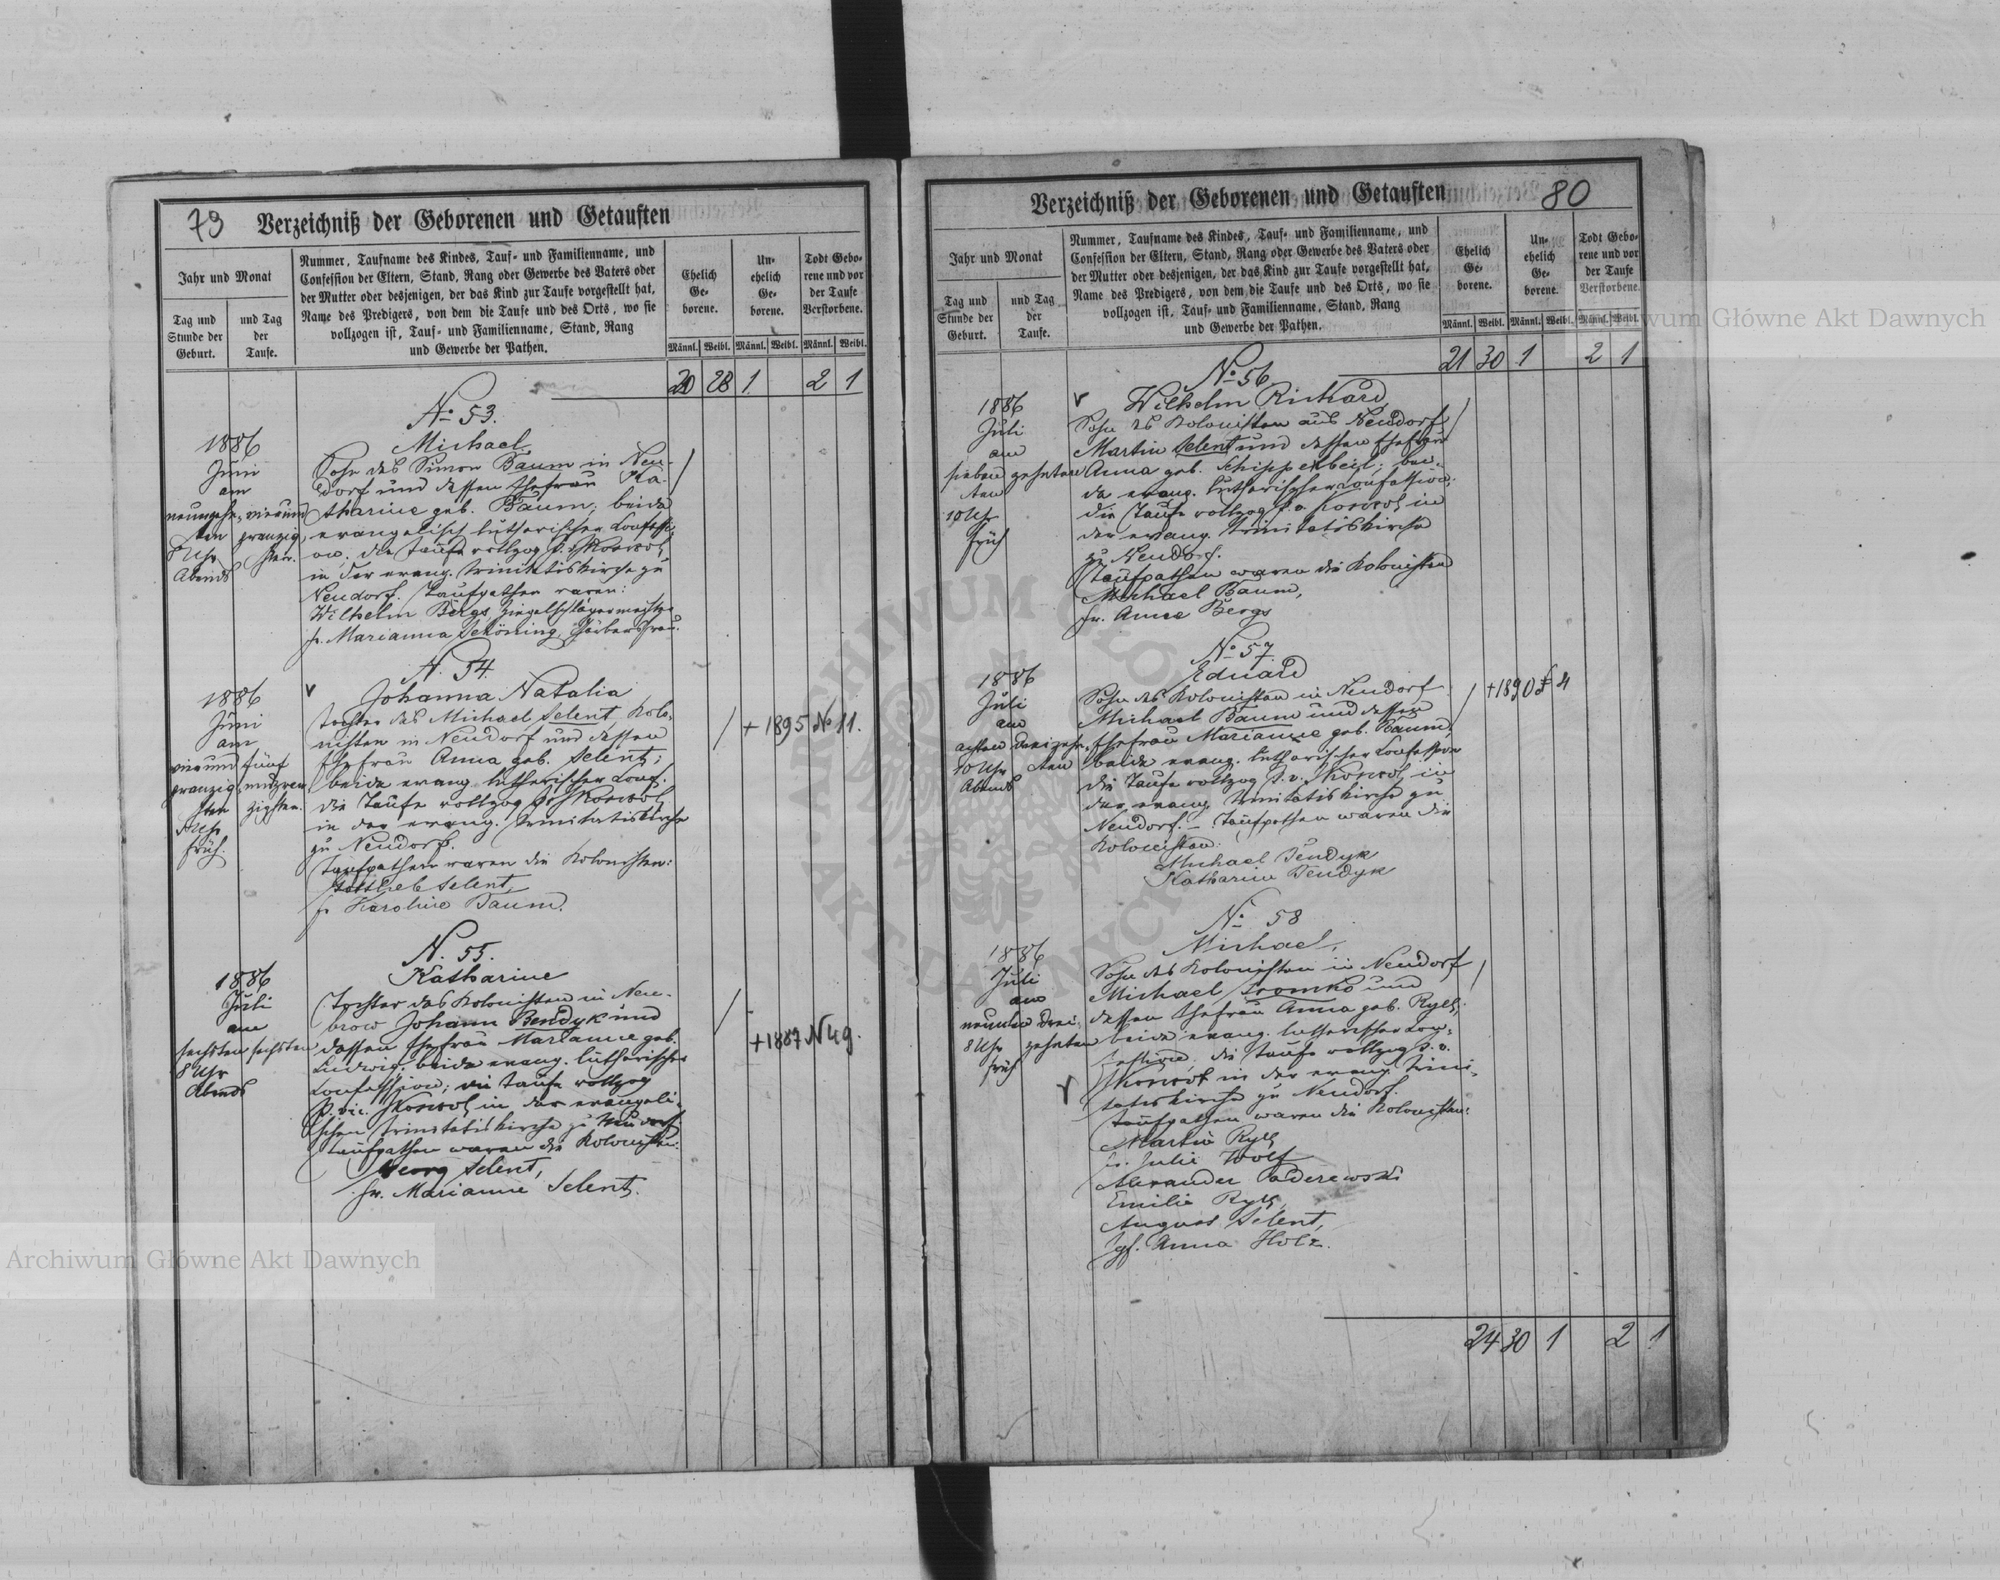 79 Verzeichniß der Geborenen und Getauften
Jahr und Monat
Tag und Stunde der Geburt.
und Tag der Taufe.
Nummer, Taufname des Kindes, Tauf- und Familienname, und
Confession der Eltern, Stand, Rang oder Gewerbe des Vaters oder
der Mutter oder desjenigen, der das Kind zur Taufe vorgestellt hat,
Name des Predigers, von dem die Taufe und des Orts, wo sie
vollzogen ist, Tauf- und Familienname, Stand, Rang
und Gewerbe der Pathen.
Ehelich Geborene.
Unehelich Geborene.
Todt Geborene und vor der Taufe Verstorbene.
Männl. Weibl. Männl. Weibl. Männl. Weibl.
20 28 1 2 1
No 53.
1886
Juni
am
neunzehn- vierund
ten zwanzig
8 Uhr sten.
Abends
Michael
Sohn des Simon Baum in Neu-
dorf und dessen Ehefrau Ka-
tharine geb. Baum; beide
evangelisch lutherischer Confessi-
on; die Taufe vollzog
in der evang. Trinitatiskirche zu
Neudorf. Taufpathen waren:
Wilhelm Bergs Ziegelschlägermeister
fr. Marianna Schöning, Färbersfrau.
N. 54.
1886
Juni
am
vierund fünf
zwanzig undzwan
sten zigsten.
Uhr
früh.
Johanna Natalia
Tochter des Michael Selent Kolo-
nisten in Neudorf und dessen
Ehefrau Anna geb. Selent;
beide evang. lutherischer Conf.
die Taufe vollzog
in der evang. Trinitatiskirche
zu Neudorf.
Taufpathen waren die Kolonisten:
Gottlieb Selent,
fr Karoline Baum.
+ 1895 No 11.
N. 55.
1886
Juli
am
sechsten sechsten
8 Uhr
Abends
Katharine
Tochter des Kolonisten in Neu-
brow Johann Bendyk und
dessen Ehefrau Marianne geb.
Ludwig; beide evang. lutherischer
Confession; die Taufe vollzog
P. vic. in der evangeli-
schen Trinitatiskirche zu Neudorf
Taufpathen waren die Kolonisten:
Georg Selent,
fr. Marianne Selent.
+ 1887 N 49.
Verzeichniß der Geborenen und Getauften 80
Jahr und Monat
Tag und Stunde der Geburt.
und Tag der Taufe.
Nummer, Taufname des Kindes, Tauf- und Familienname, und
Confession der Eltern, Stand, Rang oder Gewerbe des Vaters oder
der Mutter oder desjenigen, der das Kind zur Taufe vorgestellt hat,
Name des Predigers, von dem die Taufe und des Orts, wo sie
vollzogen ist, Tauf- und Familienname, Stand, Rang
und Gewerbe der Pathen.
Ehelich Geborene.
Unehelich Geborene.
Todt Geborene und vor der Taufe Verstorbene.
Männl. Weibl. Männl. Weibl. Männl. Weibl.
21 30 1 2 1
No 56
1886
Juli
am
sieben gehnten
ten
10 Uhr
früh
Wilhelm Richard
Sohn des Kolonisten aus Neudorf
Martin Selent und dessen Ehefrau
Anna geb. Schippenbeil; bei-
de evang. lutherischer Confession;
die Taufe vollzog P. v. in
der evang. Trinitatiskirche
zu Neudorf.
Taufpathen waren die Kolonisten
Michael Baum,
fr. Anna Bergs
No 57
1886
Juli
am
achten dreizehn-
10 Uhr ten
Abends
Eduard
Sohn des Kolonisten in Neudorf
Michael Baum und dessen
Ehefrau Marianne geb. Baum,
beide evang. lutherischer Confession
die Taufe vollzog P. v. in
der evang. Trinitatiskirche zu
Neudorf. – Taufpathen waren die
Kolonisten:
Michael Bendyk
Katharina Bendyk
+ 1890 4
No 58
1886
Juli
am
neunten drei-
8 Uhr zehnten
früh
Michael,
Sohn des Kolonisten in Neudorf
Michael und
dessen Ehefrau Anna geb. Ryll;
beide evang. lutherischer Con-
fession die Taufe vollzog P. v.
in der evang. Trini-
tatiskirche zu Neudorf.
Taufpathen waren die Kolonisten:
Martin Ryll
fr. Julie Wolf
Alexander Paderewski
Emilie Ryll,
August Selent,
Jgf. Anna Holz.
24 30 1 2 1
Archiwum Główne Akt Dawnych
Archiwum Główne Akt Dawnych
ARCHIWUM GŁÓWNE AKT DAWNYCH